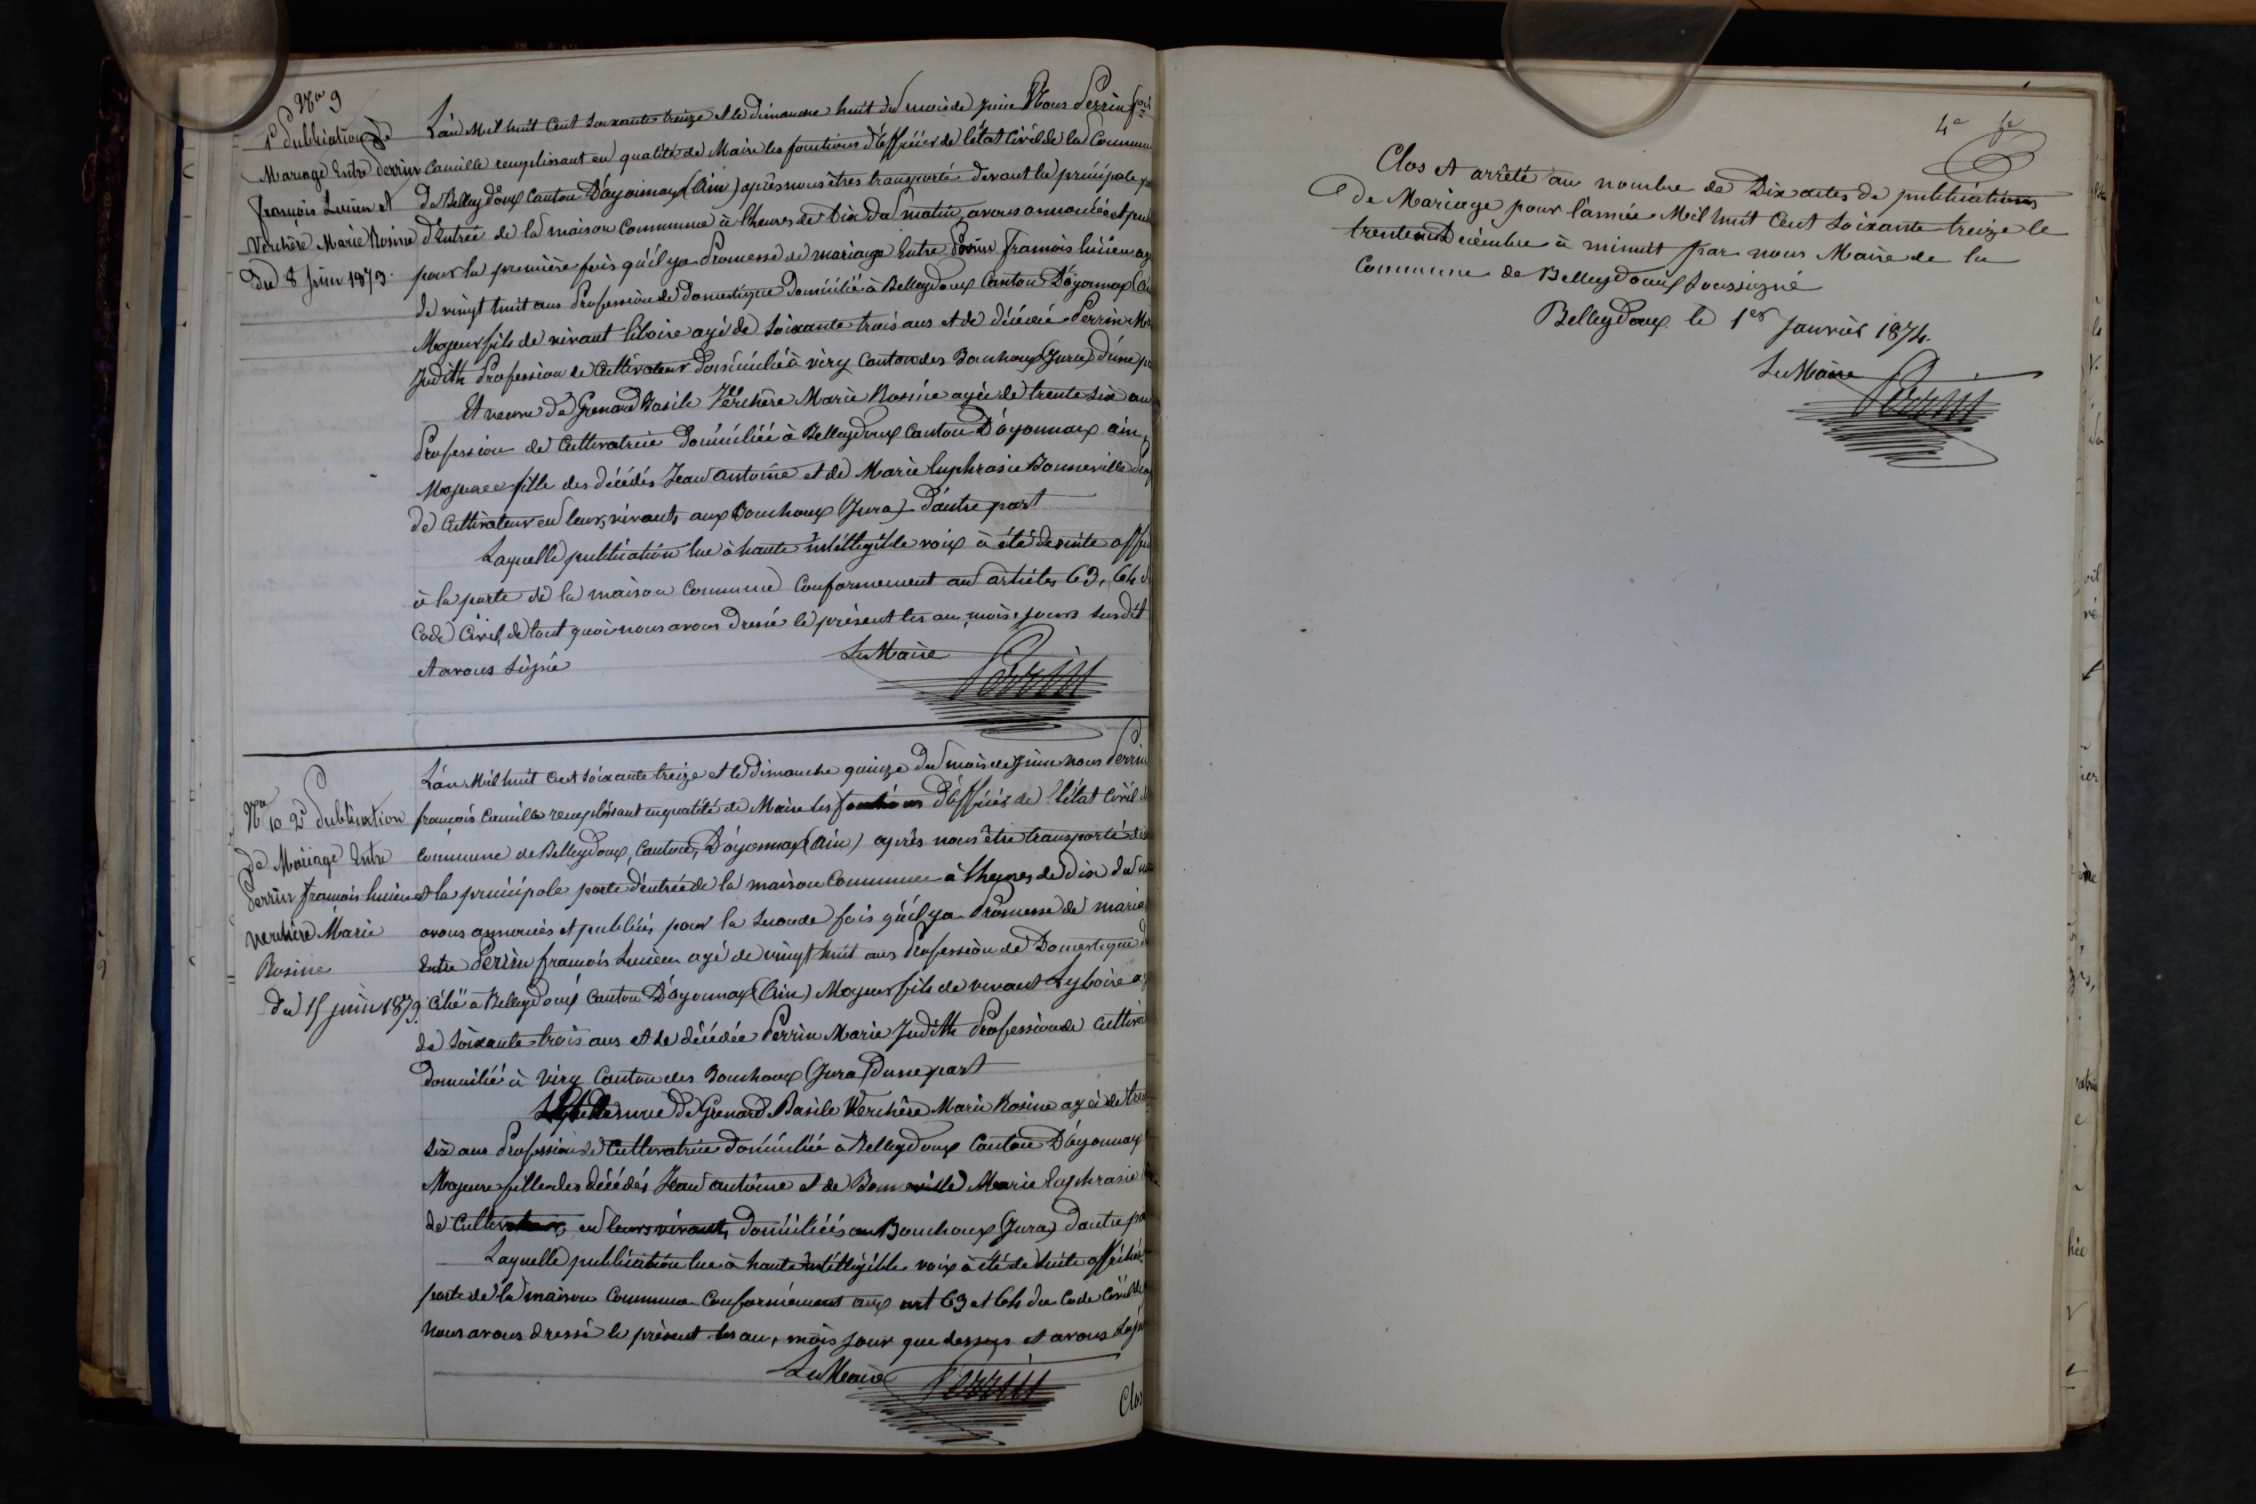 No 9
1e Publication de
Mariage Entre Perrin
françois Lucien et
Verchère Marie Rosine
Du 8 Juin 1873.
L'an Mil huit Cent soixante treize et le dimanche huit du mois de Juin Nous Perrin fois
Camille remplissant en qualité de Maire les fonctions d'officier de l'état Civil de la Commune
de Belleydoux Canton D'oyonnax (Ain) après nous êtres transporté devant la principale
d'Entrée de la maison Commune à l'heures de Dix du matin avons annoncées et pub
pour la première fois qu'il ya Promesse de mariage Entre Perrin françois lucien ag
de vingt huit ans Profession de Domestique Domicilié à Belleydoux Canton D'oyonnax (Ai
Majeur fils de vivant liboire agé de soixante trois ans et de décédée Perrin M
Judith Profession de Cultivateur Domicilié à viry Canton des Bouchoux (Jura) d'une p
Et veuve de Grenard Basile Verchère Marie Rosine agée de trente six an
Profession de Cultivatrice Domiciliée à Belleydoux Canton D'oyonnax ain
Majeure fille des décédés Jean antoine et de Marie Euphrasie Bonneville
de Cultivateur en leurs vivants aux Bouchoux (Jura) d'autre part
Laquelle publication lue à haute intelligible voix à été de suite affi
à la porte de la maison Commune Conformement aux articles 63, 64 d
Code Civil, de tout quoi nous avons dressé le présent les an, mois, jours susdit
et avons signé
Le Maire Perrin
No 10 2e Publication
de Mariage Entre
Perrin françois lucien et
verchère Marie
Rosine
du 15 juin 1873.
L'an Mil huit Cent soixante treize et le dimanche quinze du mois de Juin nous Perrin
françois Camille remplissant en qualité de Maire les fonctions d'officier de l'état Civil d
Commune de Belleydoux, Canton, D'oyonnax (Ain) après nous être transporté de
la principale porte d'entrée de la maison Commune à l'heures de Dix du
avons annoncées et publiées pour la seconde fois qu'il ya Promesse de maria
Entre Perrin françois Lucien agé de vingt huit ans Profession de Domestique d
cilié à Belleydoux Canton D'oyonnax (Ain) Majeur fils de vivant Lyboire a
de soixante trois ans et de décédée Perrin Marie Judith Profession de Cultiva
Domicilié à viry Canton des Bouchoux (Jura) d'une part
veuve de Grenard Basile Verchère Marie Rosine agée de tre
six ans Profession de Cultivatrice domiciliée à Belleydoux Canton D'oyonnax
Majeure fille des décédés Jean antoine et de Bonneville Marie Euphrasie
de Cultivateur, en leurs vivants, domiciliées au Bouchoux (Jura) d'autre pa
Laquelle publication lue à haute intelligible voix à été de suite affichée
porte de la maison Commune Conformément aux art 63 et 64 du Code Civil de
Nous avons dressé le présent les an, mois jour que dessus et avons sign
Le Maire Perrin
Clos
4e fe
Clos et arrêté au nombre de Dix actes de publications
de Mariage pour l'année Mil huit Cent soixante treize le
trente un Décembre à minuit par nous Maire de la
Commune de Belleydoux soussigné
Belleydoux le 1er Janvier 1874.
Le Maire
Perrin